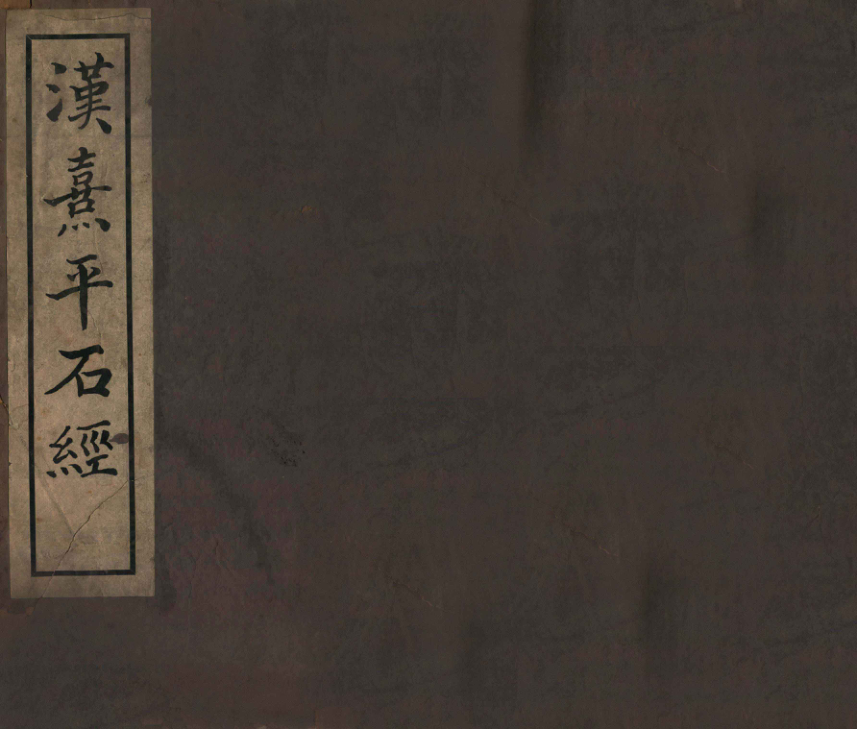 漢熹平石經